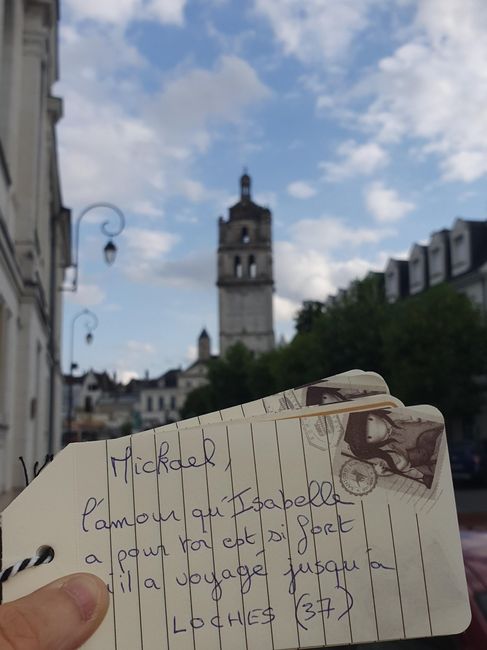 Mickael,
l'amour qu'Isabelle
a pour toi est si fort
qu'il a voyagé jusqu'à
LOCHES (37)